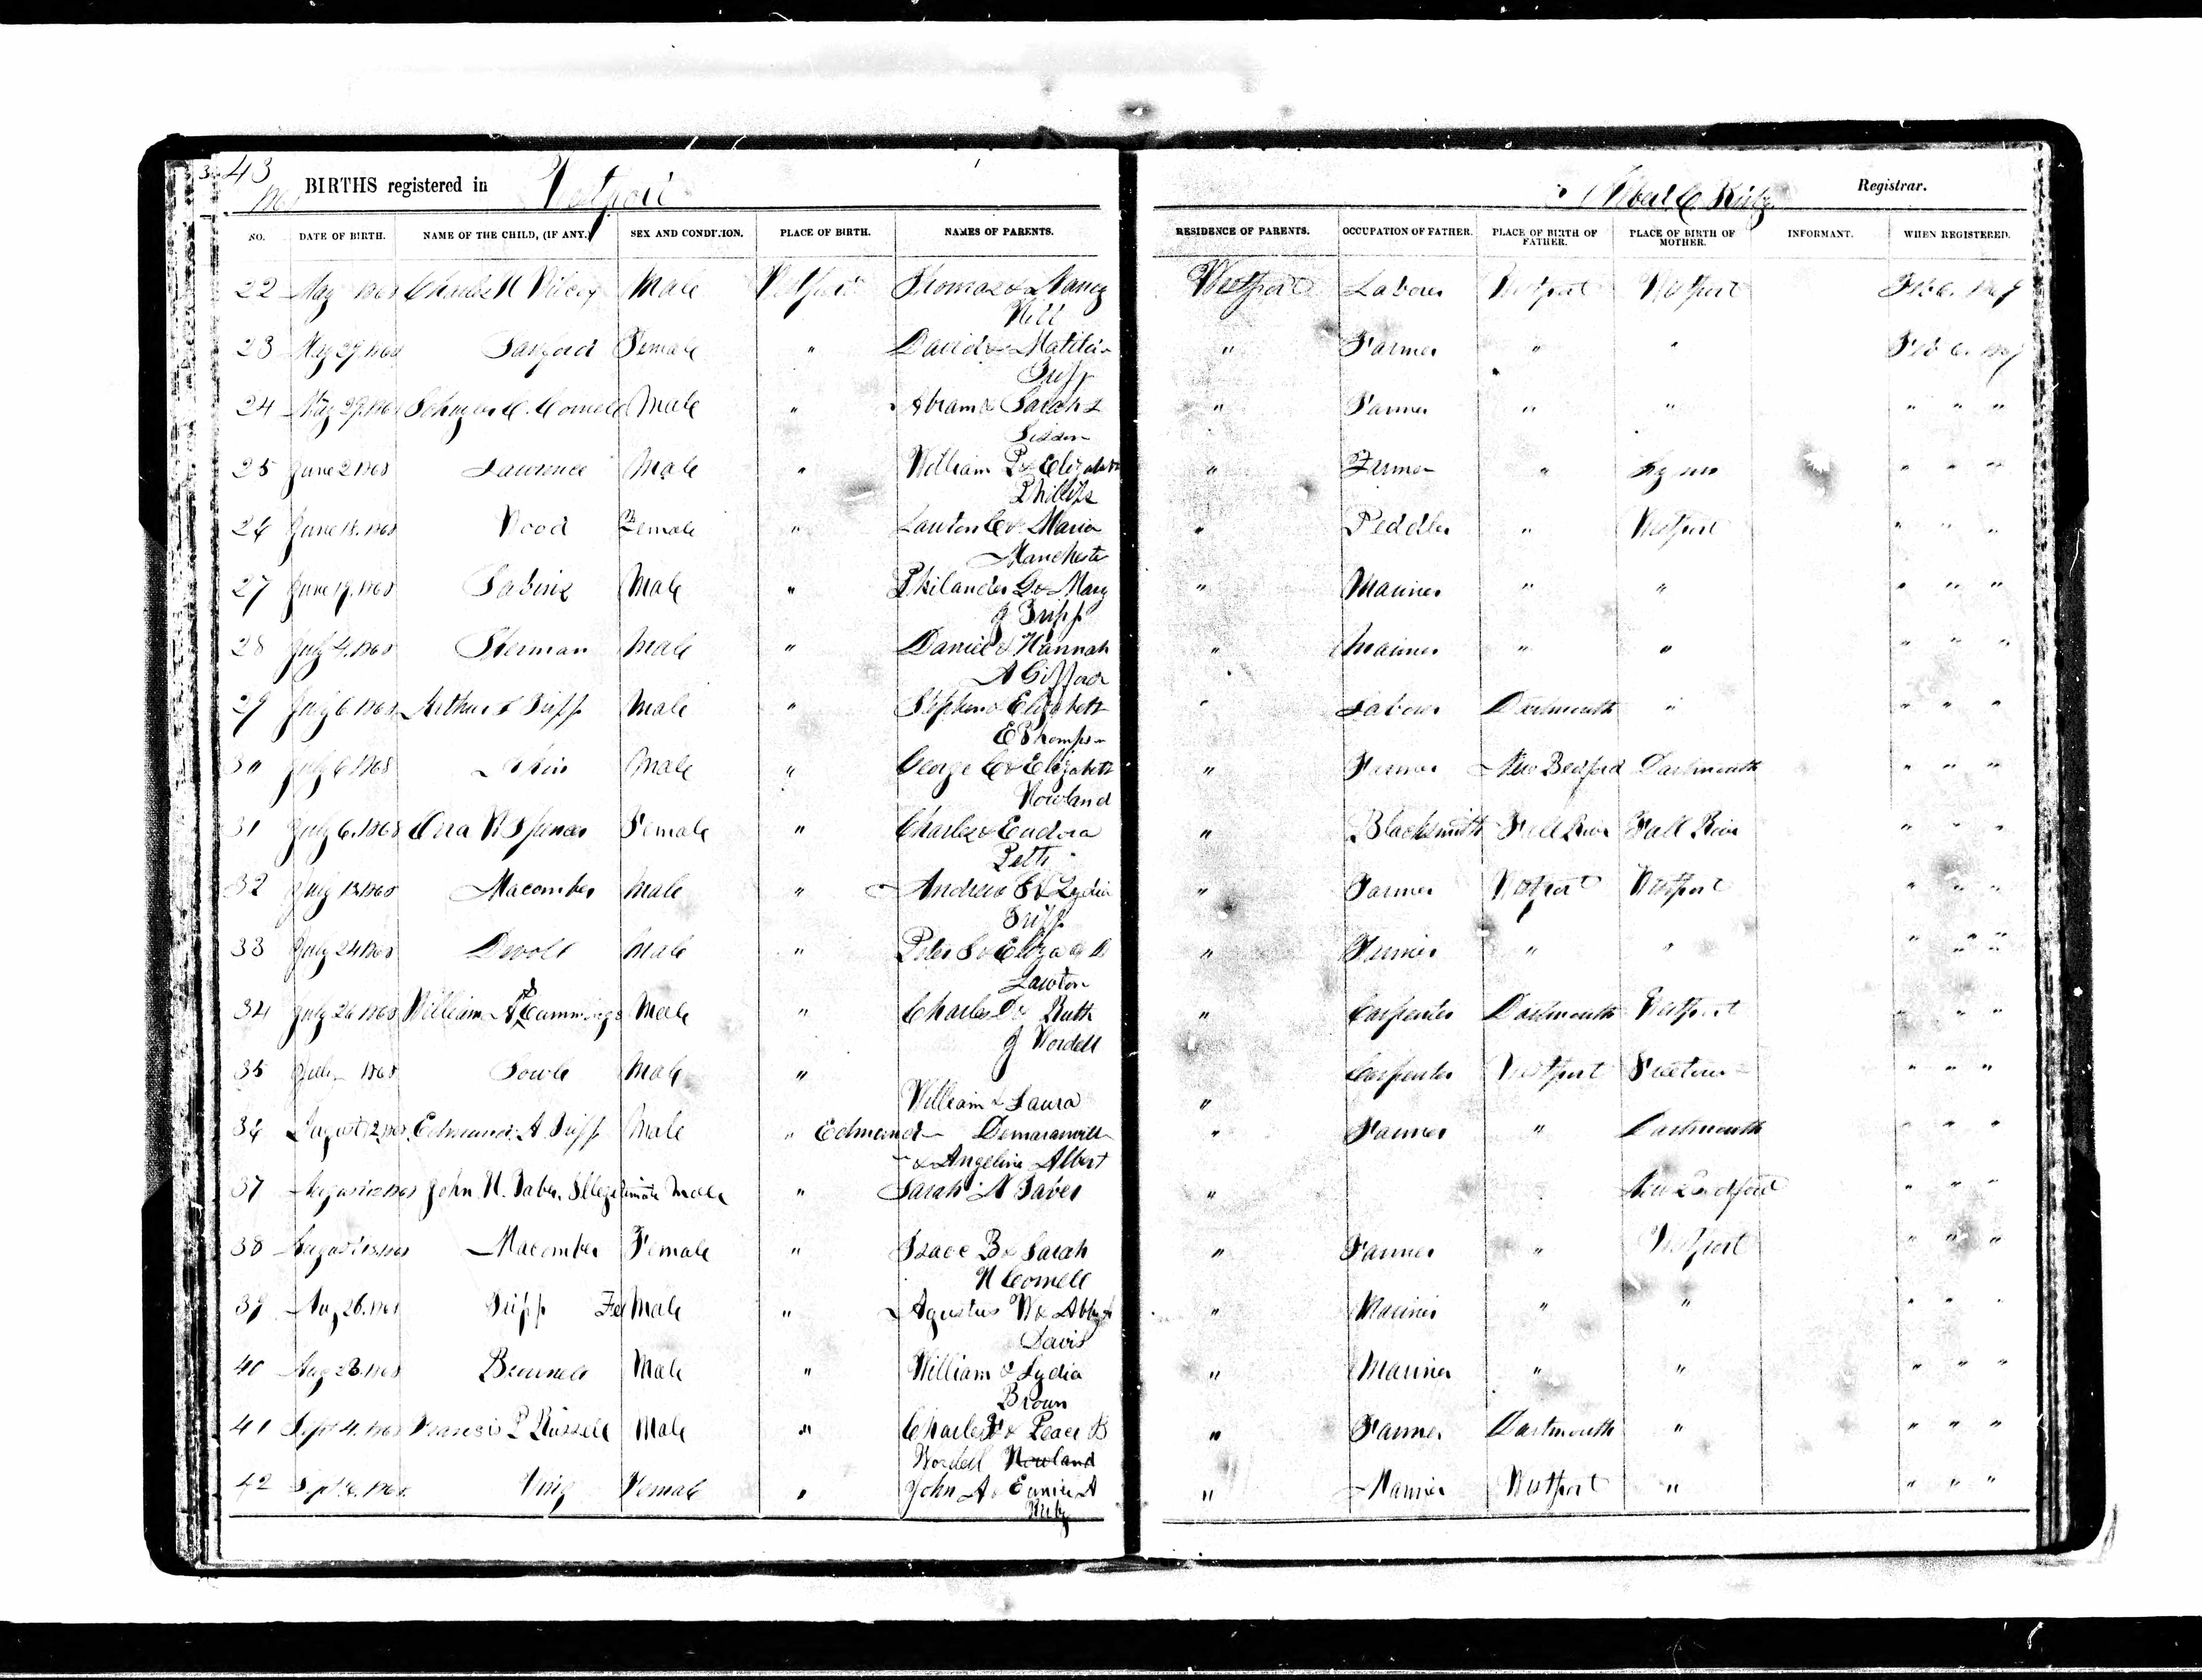 43
BIRTHS registered in Westport
Albert C. Kirby Registrar.
NO. DATE OF BIRTH. NAME OF THE CHILD, (IF ANY.) SEX AND CONDITION. PLACE OF BIRTH. NAMES OF PARENTS. RESIDENCE OF PARENTS. OCCUPATION OF FATHER. PLACE OF BIRTH OF FATHER. PLACE OF BIRTH OF MOTHER. INFORMANT. WHEN REGISTERED.
22 May 1868 Charles H Wilcox Male Westport Thomas & Nancy Westport Laborer Westport Westport Feb 6. 1869
23 May 29. 1868 Sanford Female " David & Matilda " Farmer " " Feb 6. 1869
Tripp
24 May 29. 1868 C. Cornell Male " Abram & Sarah " Farmer " " " " "
Sisson
25 June 2 1868 Lawrence Male " William P & Elizabeth " Farmer " " " "
Phillips
26 June 18. 1868 Wood Female " Lawton C & Maria " Peddler " Westport " " "
Manchester
27 June 19. 1868 Male " Philander G & Mary " Mariner " " " " "
J Tripp
28 July 4. 1868 Sherman Male " Daniel & Hannah " Mariner " " " " "
A Gifford
29 July 6 1868 Arthur Tripp Male " Stephen & Elizabeth " Laborer Dartmouth " " " "
E Thompson
30 July 6 1868 Male " George C & Elizabeth " Farmer New Bedford Dartmouth " " "
Howland
31 July 6. 1868 Spencer Female " Charles & Eudora " Blacksmith Fall River Fall River " " "
Petty
32 July 13. 1868 Macomber Male " Andrew & Lydia " Farmer Westport Westport " " "
Tripp
33 July 24 1868 Devoll Male " Peter & Eliza " Farmer " " " " "
Lawton
34 July 26 1868 William A Cummings Male " Charles D & Ruth " Carpenter Dartmouth Westport " " "
J Wordell
35 July 1868 Sowle Male " Carpenter Westport Freetown " " "
William & Laura "
36 August 12 1868 Edmund A. Tripp Male " Edmund Demaranvill " Farmer " Dartmouth " " "
& Angeline Albert
37 August 1868 John H. Taber Illegitimate Male " Sarah N Taber " New Bedford " " "
38 August 13 1868 Macomber Female " Isaac B & Sarah " Farmer " Westport " " "
H Cornell
39 Aug 26. 1868 Tripp FeMale " Agustus W & Abby A " Mariner " " " " "
Davis
40 Aug 28. 1868 Brownell Male " William & Lydia " Mariner " " " " "
Brown
41 Sept 4. 1868 Francis P Russell Male " Charles F & Peace B " Farmer Dartmouth " " " "
Wordell Howland
42 Sept 6. 1868 King Female " John A & Eunice A " Mariner Westport " " " "
Kirby